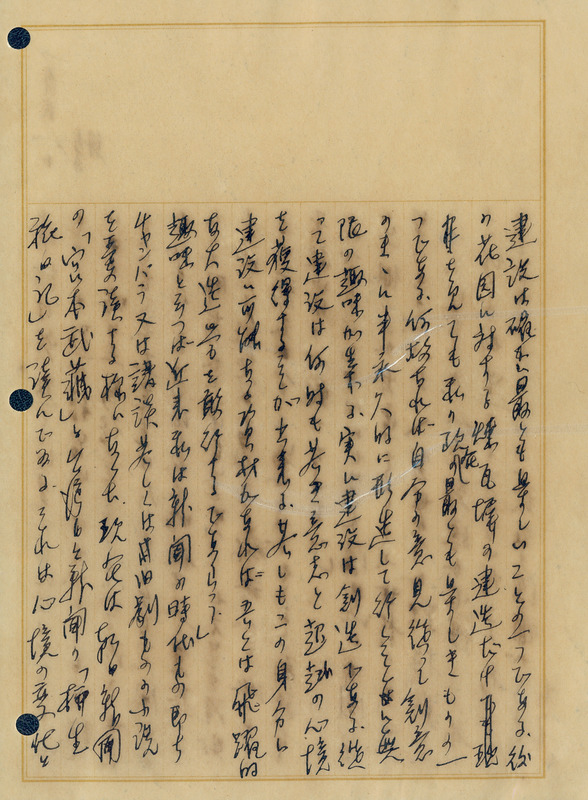 建設は確かに最とも楽しいことの一つである 後
の花園に対する煉瓦塀の建造だけ
を見ても私の現在最とも楽しきものの一
つである 何故なれば自分の意見従って創意
のまゝに半永久的に形造して行くことは無
限の趣味が来る 実に建設は創造である 従
って建設は何時も若き意志と超越の心境
を獲得することが出来る 若しも二の身分に
建設に可能なる資材があれば吾々は飛躍的
な大造営を敢行するであらう」
趣味と云へば近来私は新聞の時代もの即ち
チャンバラ又は講談若しくは旧劇ものの小説
を愛読する様になった 現在は朝日新聞
の「宮本武蔵」と 新聞の「柳生
旅日記」を読んでゐる これは心境の変化と